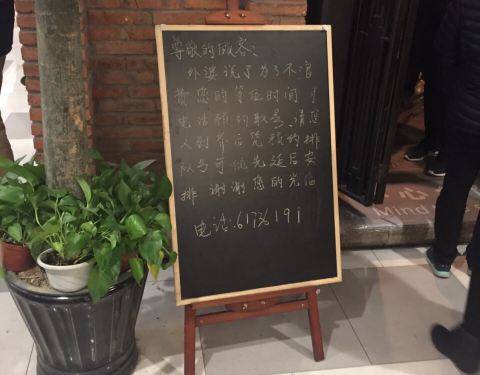 尊敬的顾客：
外婆说了为了不浪
费您的等位时间可
电话预约取号，请您
人到齐后凭预约排
队号可优先延后安
排 谢谢您的光临
电话：61736191
小心
Mind